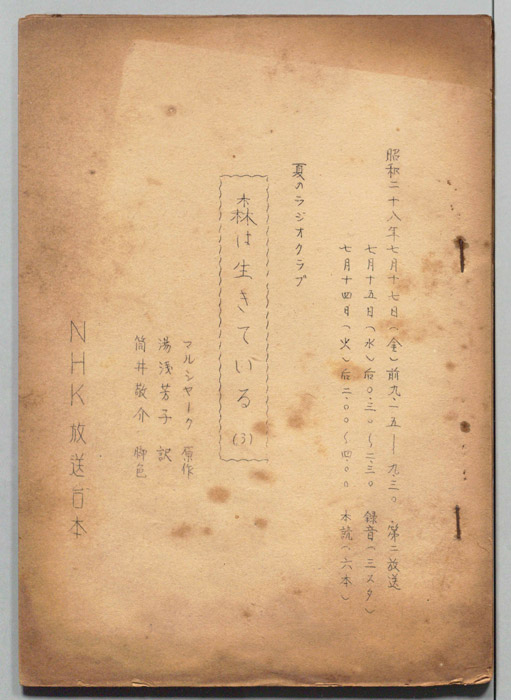 昭和二十八年七月十七日(金)前九.一五―九.三〇 第二放送
七月十五日(水)后〇.三〇~二.三〇 録音(三スタ)
七月十四日(火)后二.〇〇~四.〇〇 本読(六本)
夏のラジオクラブ
森は生きている (3)
マルシャーク 原作
湯浅芳子 訳
筒井敬介 脚色
NHK放送台本